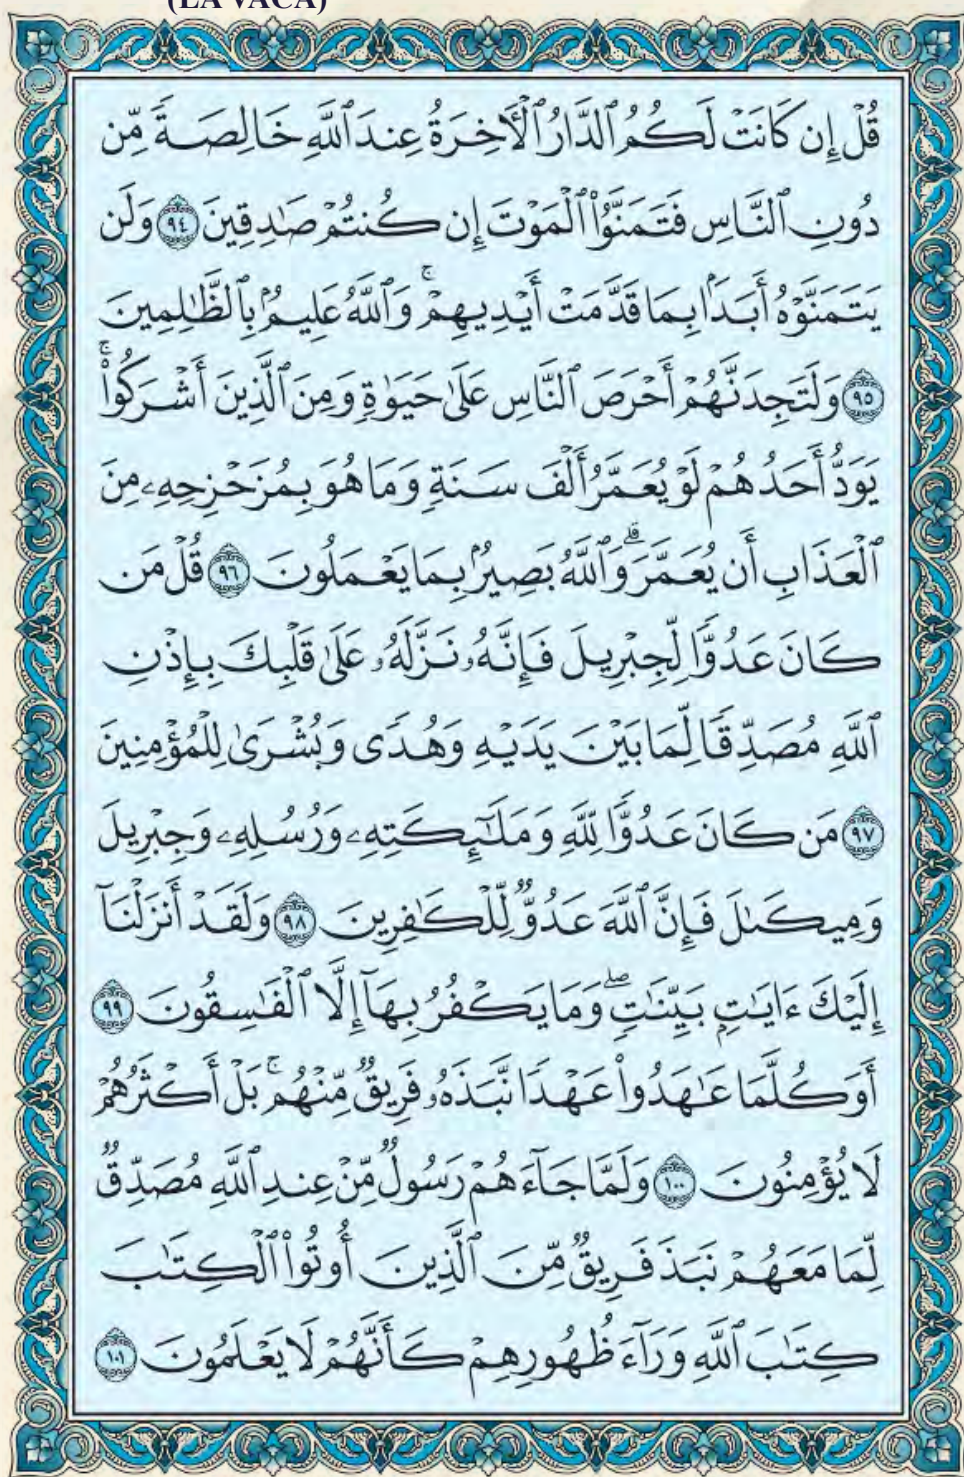 (LA VACA)
قُلْ إِن كَانَتْ لَكُمُ ٱلدَّارُ ٱلْأَخِرَةُ عِندَ ٱللَّهِ خَالِصَةً مِّن
دُونِ ٱلنَّاسِ فَتَمَنَّوُا۟ ٱلْمَوْتَ إِن كُنتُمْ صَٰدِقِينَ ٩٤ وَلَن
يَتَمَنَّوْهُ أَبَدًۢا بِمَا قَدَّمَتْ أَيْدِيهِمْ ۚ وَٱللَّهُ عَلِيمٌۢ بِٱلظَّٰلِمِينَ
٩٥ وَلَتَجِدَنَّهُمْ أَحْرَصَ ٱلنَّاسِ عَلَىٰ حَيَوٰةٍ وَمِنَ ٱلَّذِينَ أَشْرَكُوا۟ ۚ
يَوَدُّ أَحَدُهُمْ لَوْ يُعَمَّرُ أَلْفَ سَنَةٍ وَمَا هُوَ بِمُزَحْزِحِهِۦ مِنَ
ٱلْعَذَابِ أَن يُعَمَّرَ ۗ وَٱللَّهُ بَصِيرٌۢ بِمَا يَعْمَلُونَ ٩٦ قُلْ مَن
كَانَ عَدُوًّا لِّجِبْرِيلَ فَإِنَّهُۥ نَزَّلَهُۥ عَلَىٰ قَلْبِكَ بِإِذْنِ
ٱللَّهِ مُصَدِّقًا لِّمَا بَيْنَ يَدَيْهِ وَهُدًى وَبُشْرَىٰ لِلْمُؤْمِنِينَ
٩٧ مَن كَانَ عَدُوًّا لِّلَّهِ وَمَلَٰٓئِكَتِهِۦ وَرُسُلِهِۦ وَجِبْرِيلَ
وَمِيكَىٰلَ فَإِنَّ ٱللَّهَ عَدُوٌّ لِّلْكَٰفِرِينَ ٩٨ وَلَقَدْ أَنزَلْنَآ
إِلَيْكَ ءَايَٰتٍۭ بَيِّنَٰتٍ ۖ وَمَا يَكْفُرُ بِهَآ إِلَّا ٱلْفَٰسِقُونَ ٩٩
أَوَكُلَّمَا عَٰهَدُوا۟ عَهْدًا نَّبَذَهُۥ فَرِيقٌ مِّنْهُم ۚ بَلْ أَكْثَرُهُمْ
لَا يُؤْمِنُونَ ١٠٠ وَلَمَّا جَآءَهُمْ رَسُولٌ مِّنْ عِندِ ٱللَّهِ مُصَدِّقٌ
لِّمَا مَعَهُمْ نَبَذَ فَرِيقٌ مِّنَ ٱلَّذِينَ أُوتُوا۟ ٱلْكِتَٰبَ
كِتَٰبَ ٱللَّهِ وَرَآءَ ظُهُورِهِمْ كَأَنَّهُمْ لَا يَعْلَمُونَ ١٠١